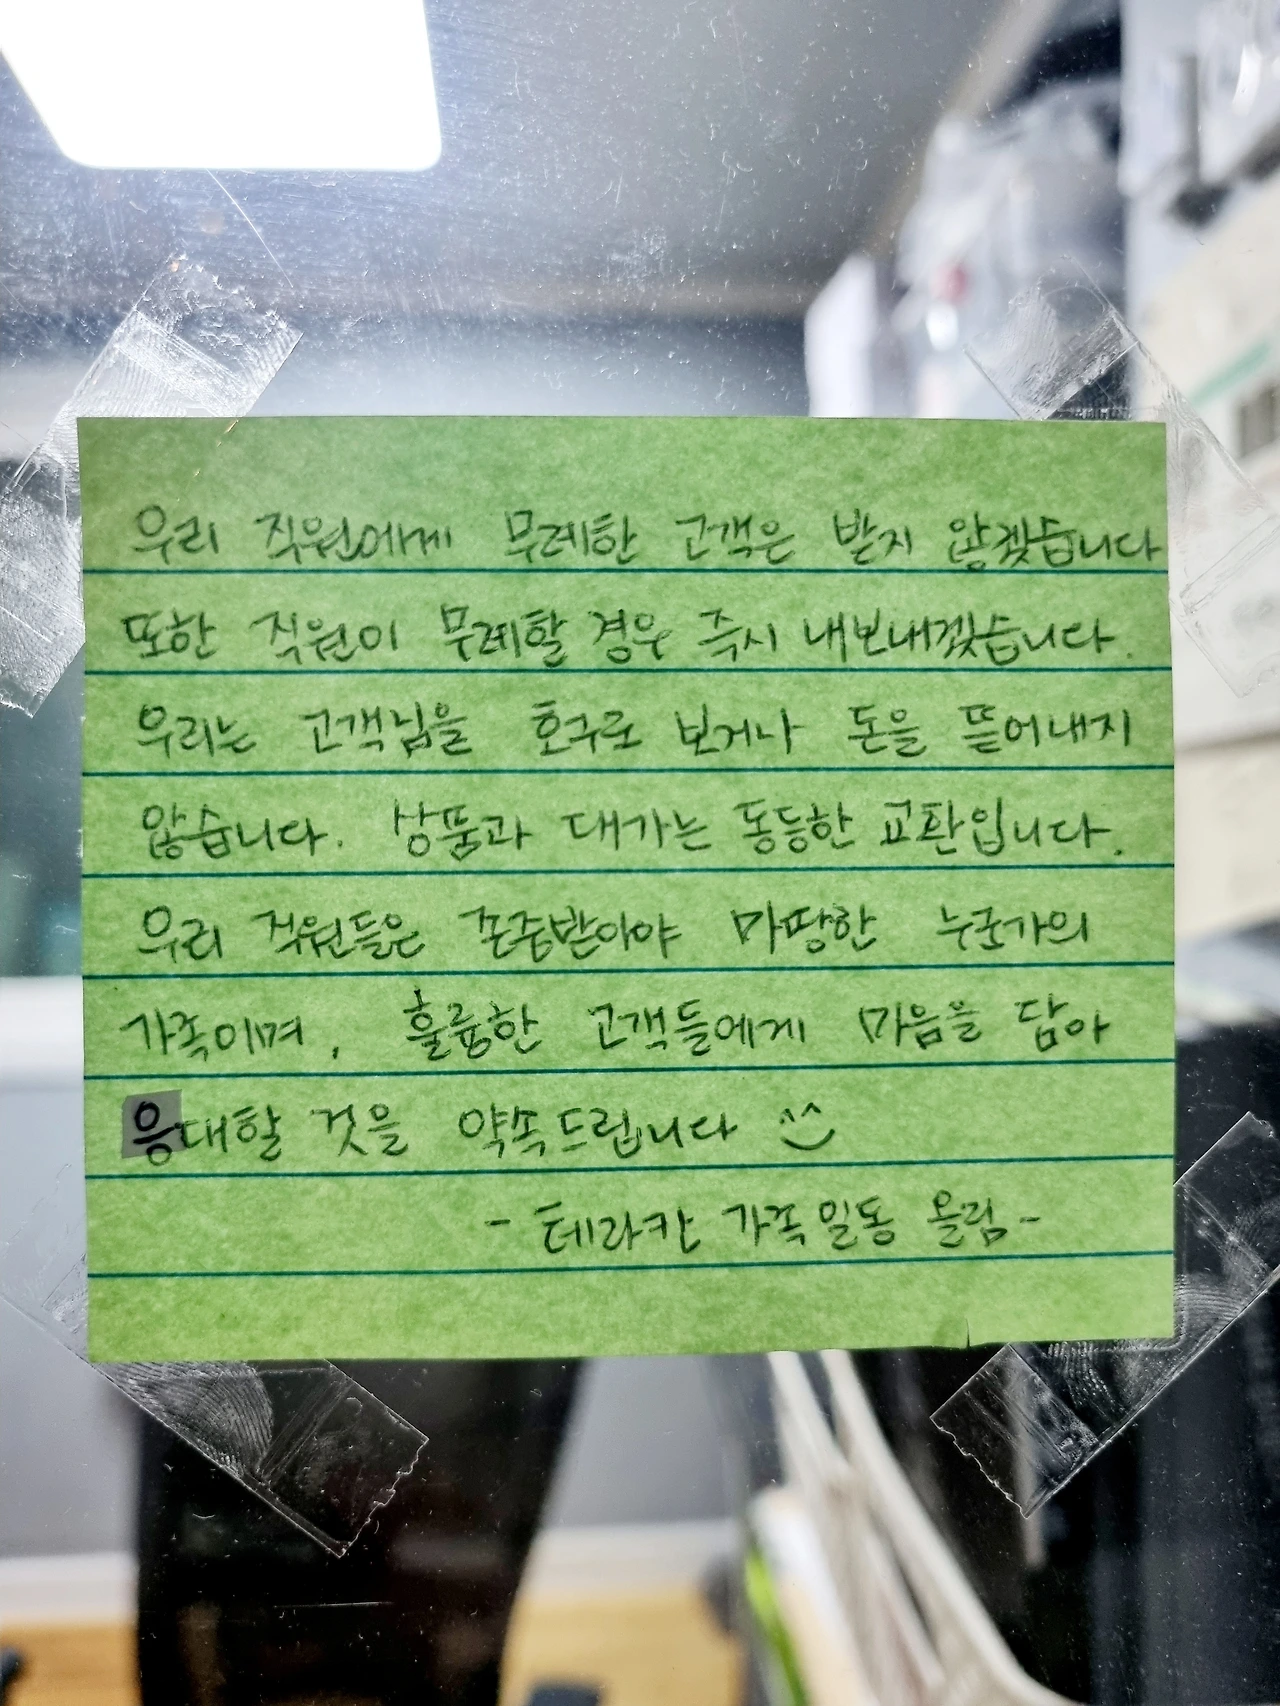 우리 직원에게 무례한 고객은 받지 않겠습니다
또한 직원이 무례할 경우 즉시 내보내겠습니다.
우리는 고객님을 호구로 보거나 돈을 뜯어내지
않습니다. 상품과 대가는 동등한 교환입니다.
우리 직원들은 존중받아야 마땅한 누군가의
가족이며, 훌륭한 고객들에게 마음을 담아
응대할 것을 약속드립니다 ^^
- 테라칸 가족일동 올림 -